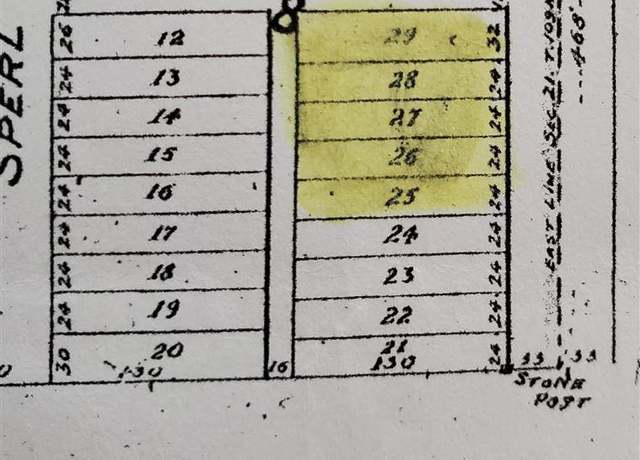 SPERL
26 12
24 13
24 14
24 15
24 16
24 17
24 18
24 19
30 20
130
16
8
29 32
28 24
27 24
26 24
25 24
24 24
23 24
22 24
21 24
130
EAST LINE SEC. 21 T. 109
468'
33 33
STONE
POST